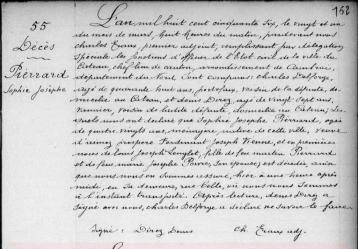 158
55
Décès
Pierrard
Sophie Josèphe
L'an mil huit cent cinquante six, le vingt et un
du mois de mars, huit heures du matin, pardevant nous
Charles Evrus, premier adjoint, remplissant par délégation
spéciale les fonctions d'officier de l'état civil de la ville du
Cateau, chef lieu de canton, arrondissement de Cambrai,
département du Nord, sont comparus: Charles Delforge,
âgé de quarante huit ans, fossoyeur, voisin de la défunte, do-
micilié au Cateau, et Denis Direz, âgé de vingt sept ans,
voisin de ladite défunte, domicilié au Cateau, les-
quels nous ont déclaré que Sophie Josèphe Pierrard, âgée
de quatre vingts ans, ménagère, native de cette ville, veuve
d'
de Louis Joseph fille de feu Pierrard
et de feue Marie Josèphe son épouse, est décédée, ainsi
que nous nous en sommes assuré, hier à une heure après
midi, en sa demeure, rue où nous nous sommes
à l'instant transporté. Après lecture, Denis Direz a
signé avec nous, Charles Delforge a déclaré ne savoir le faire.
Signé: Direz Denis Ch. Evrus adj.